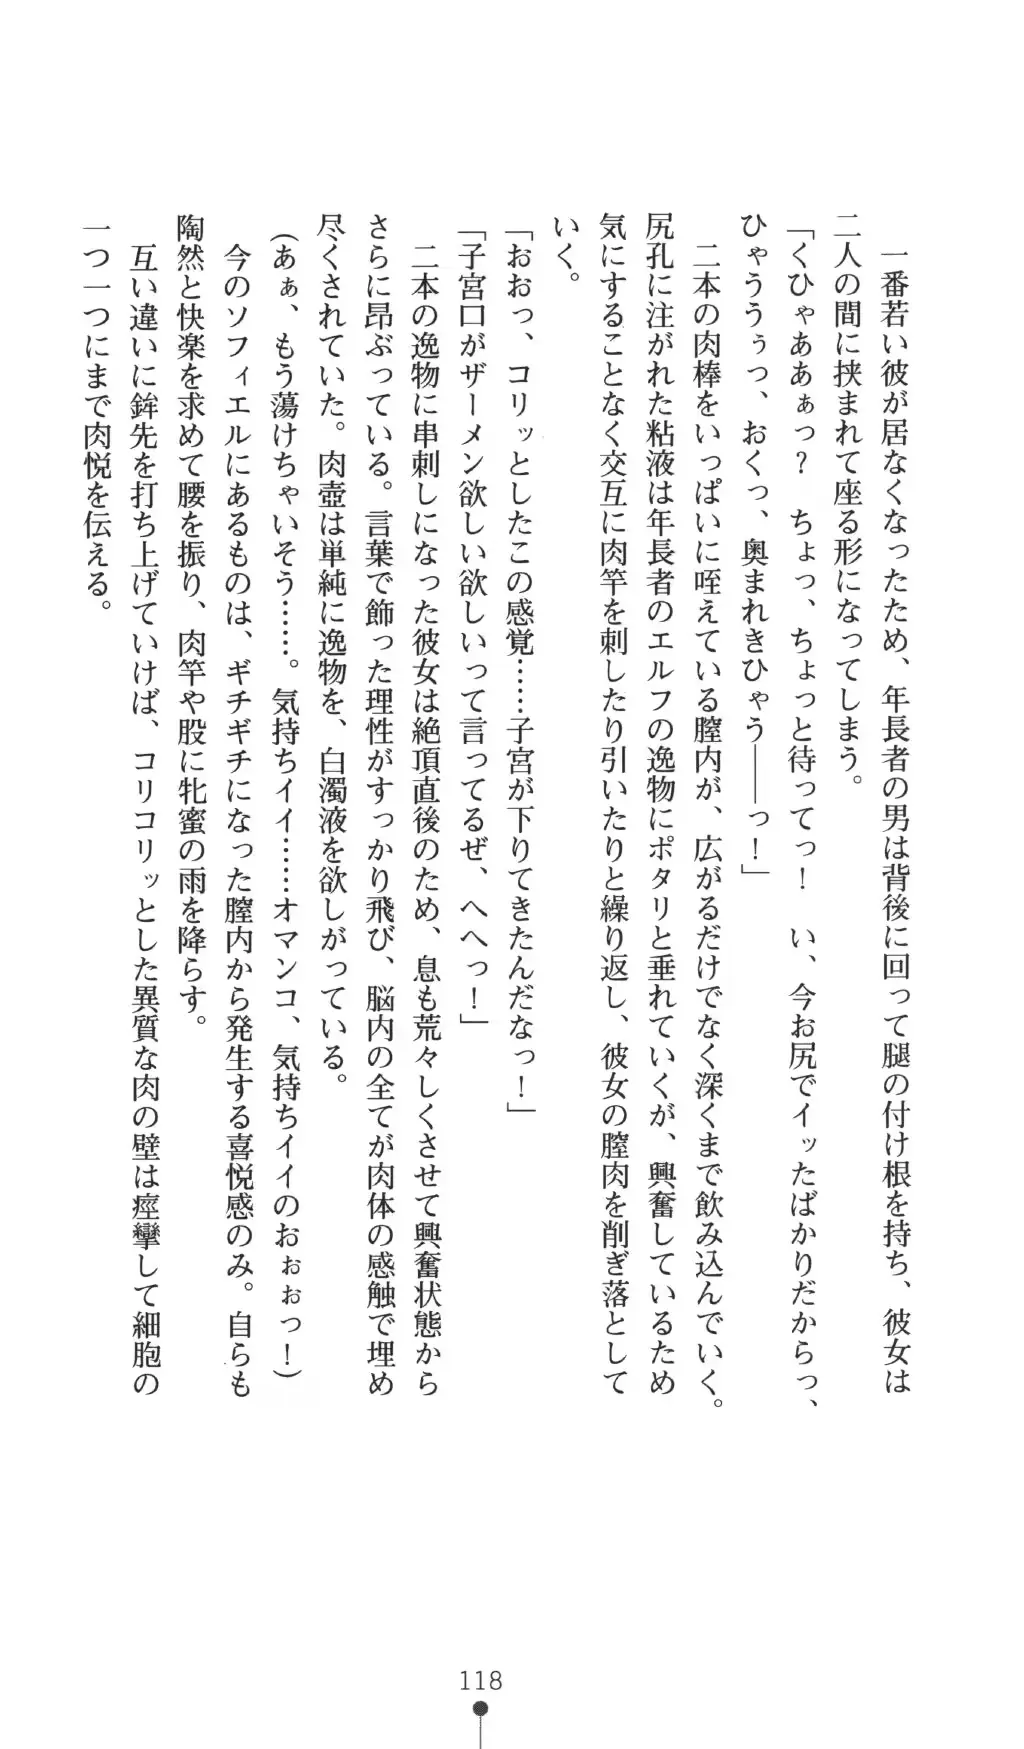 一番若い彼が居なくなったため、年長者の男は背後に回って腿の付け根を持ち、彼女は
二人の間に挟まれて座る形になってしまう。
「くひゃああぁっ？　ちょっ、ちょっと待ってっ！　い、今お尻でイッたばかりだからっ、
ひゃううぅっ、おくっ、奥まれきひゃう――っ！」
二本の肉棒をいっぱいに咥えている膣内が、広がるだけでなく深くまで飲み込んでいく。
尻孔に注がれた粘液は年長者のエルフの逸物にポタリと垂れていくが、興奮しているため
気にすることなく交互に肉竿を刺したり引いたりと繰り返し、彼女の膣肉を削ぎ落として
いく。
「おおっ、コリッとしたこの感覚……子宮が下りてきたんだなっ！」
「子宮口がザーメン欲しい欲しいって言ってるぜ、へへっ！」
二本の逸物に串刺しになった彼女は絶頂直後のため、息も荒々しくさせて興奮状態から
さらに昂ぶっている。言葉で飾った理性がすっかり飛び、脳内の全てが肉体の感触で埋め
尽くされていた。肉壺は単純に逸物を、白濁液を欲しがっている。
（あぁ、もう蕩けちゃいそう……。気持ちイイ……オマンコ、気持ちイイのおぉぉっ！）
今のソフィエルにあるものは、ギチギチになった膣内から発生する喜悦感のみ。自らも
陶然と快楽を求めて腰を振り、肉竿や股に牝蜜の雨を降らす。
互い違いに鉾先を打ち上げていけば、コリコリッとした異質な肉の壁は痙攣して細胞の
一つ一つにまで肉悦を伝える。
118